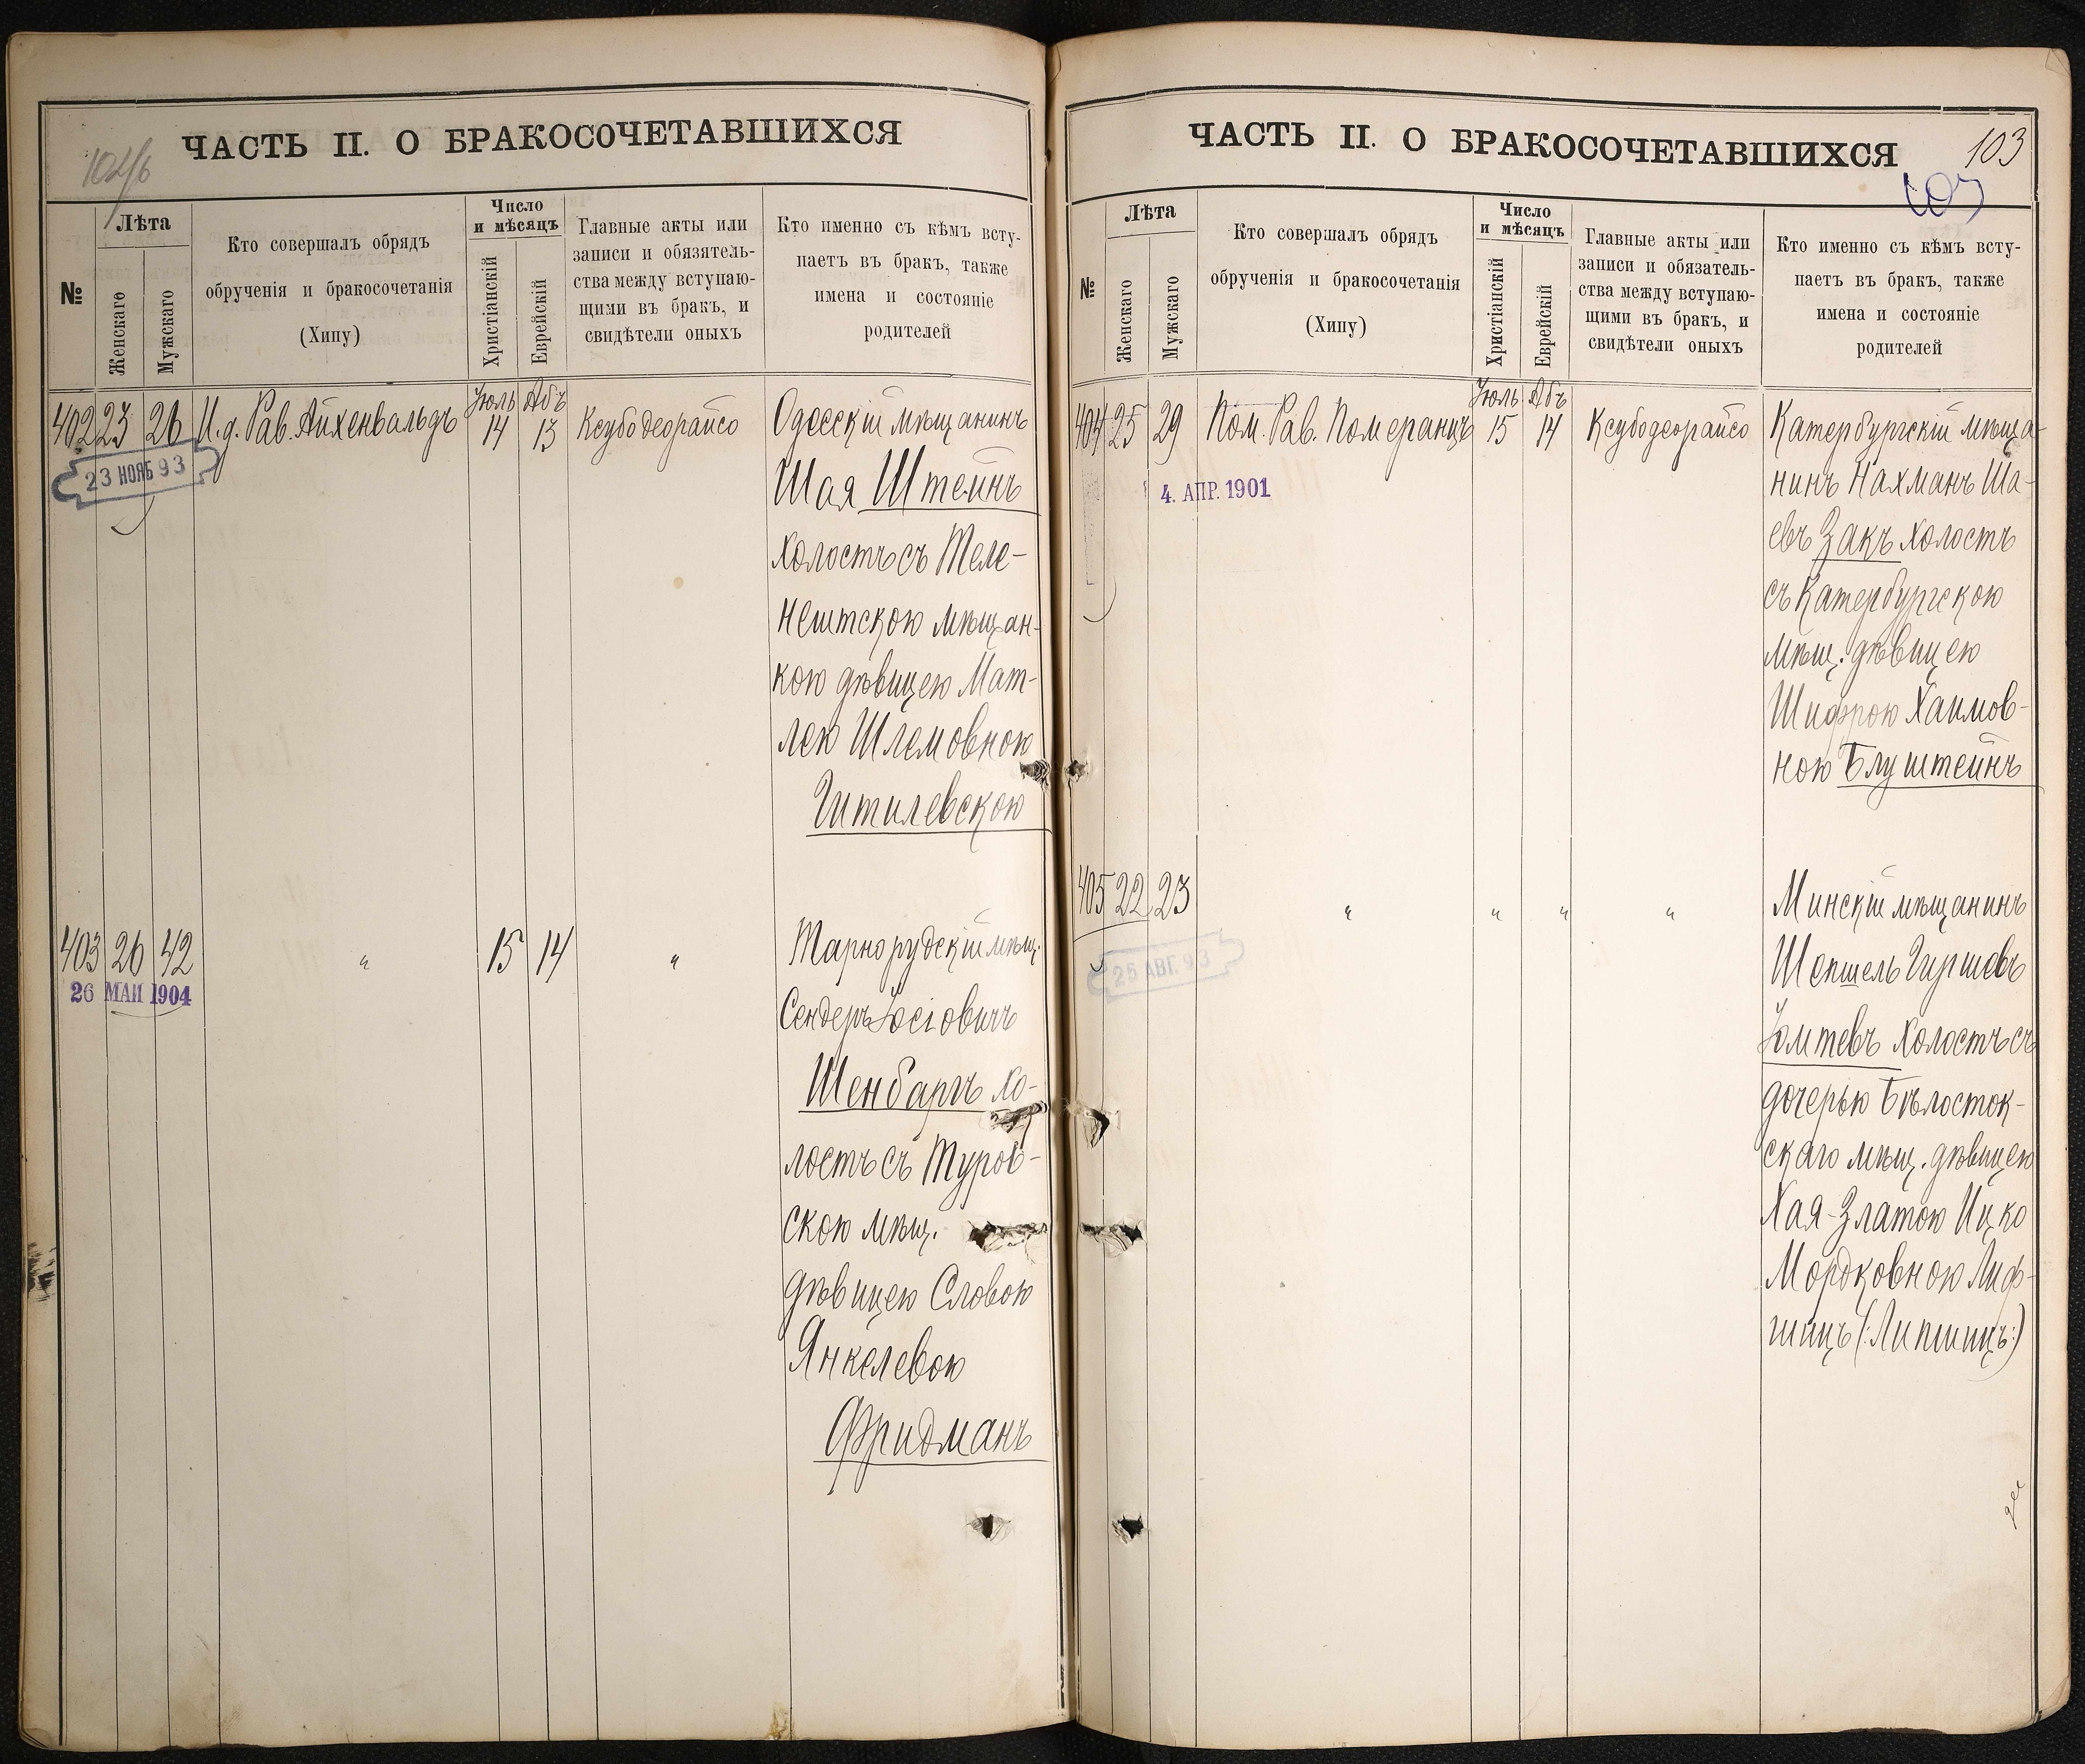 ЧАСТЬ II. О БРАКОСОЧЕТАВШИХСЯ
№
Лѣта
Женскаго
Мужскаго
Кто совершалъ обрядъ
обрученія и бракосочетанія
(Хипу)
Число
и мѣсяцъ
Христіанскій
Еврейскій
Главные акты или
записи и обязятель-
ства между вступаю-
щими въ бракъ, и
свидѣтели оныхъ
Кто именно съ кѣмъ всту-
паетъ въ бракъ, также
имена и состояніе
родителей
Іюль Абъ
402 23 26 И.д. Рав. Айхенвальдъ 14 13 Ксубодеорайсо Одесскій мѣщанинъ
23 НОЯБ 93
Шая Штейнъ
холостъ съ Теле-
нештскою мѣщан-
кою дѣвицею Мат-
лею Шлемовною
Гитилевскою
403 26 42 " 15 14 " Тарнорудскій мѣщ.
26 МАИ 1904
Сендеръ Іосіовичъ
Шенбаргъ хо-
лостъ съ Туров-
скою мѣщ.
дѣвицею Словою
Янкелевою
Фридманъ
ЧАСТЬ II. О БРАКОСОЧЕТАВШИХСЯ
103
103
№
Лѣта
Женскаго
Мужскаго
Кто совершалъ обрядъ
обрученія и бракосочетанія
(Хипу)
Число
и мѣсяцъ
Христіанскій
Еврейскій
Главные акты или
записи и обязатель-
ства между вступаю-
щими въ бракъ, и
свидѣтели оныхъ
Кто именно съ кѣмъ всту-
паетъ въ бракъ, также
имена и состояніе
родителей
Іюль Абъ
404 25 29 Пом. Рав. Померанцъ 15 14 Ксубодеорайсо Катербургскій мѣща-
4. АПР. 1901
нинъ Нахманъ Ша-
евъ Закъ холостъ
съ Катербургскою
мѣщ. дѣвицею
Шифрою Хаимов-
ною Блуштейнъ
405 22 23 " " " " Минскій мѣщанинъ
25 АВГ. 93
Шепшель Гиршевъ
Іомтевъ холостъ съ
дочерью Бѣлосток-
скаго мѣщ. дѣвицею
Хая-Златою Ицко
Мордковною Лиф-
шицъ (:Липшицъ:)